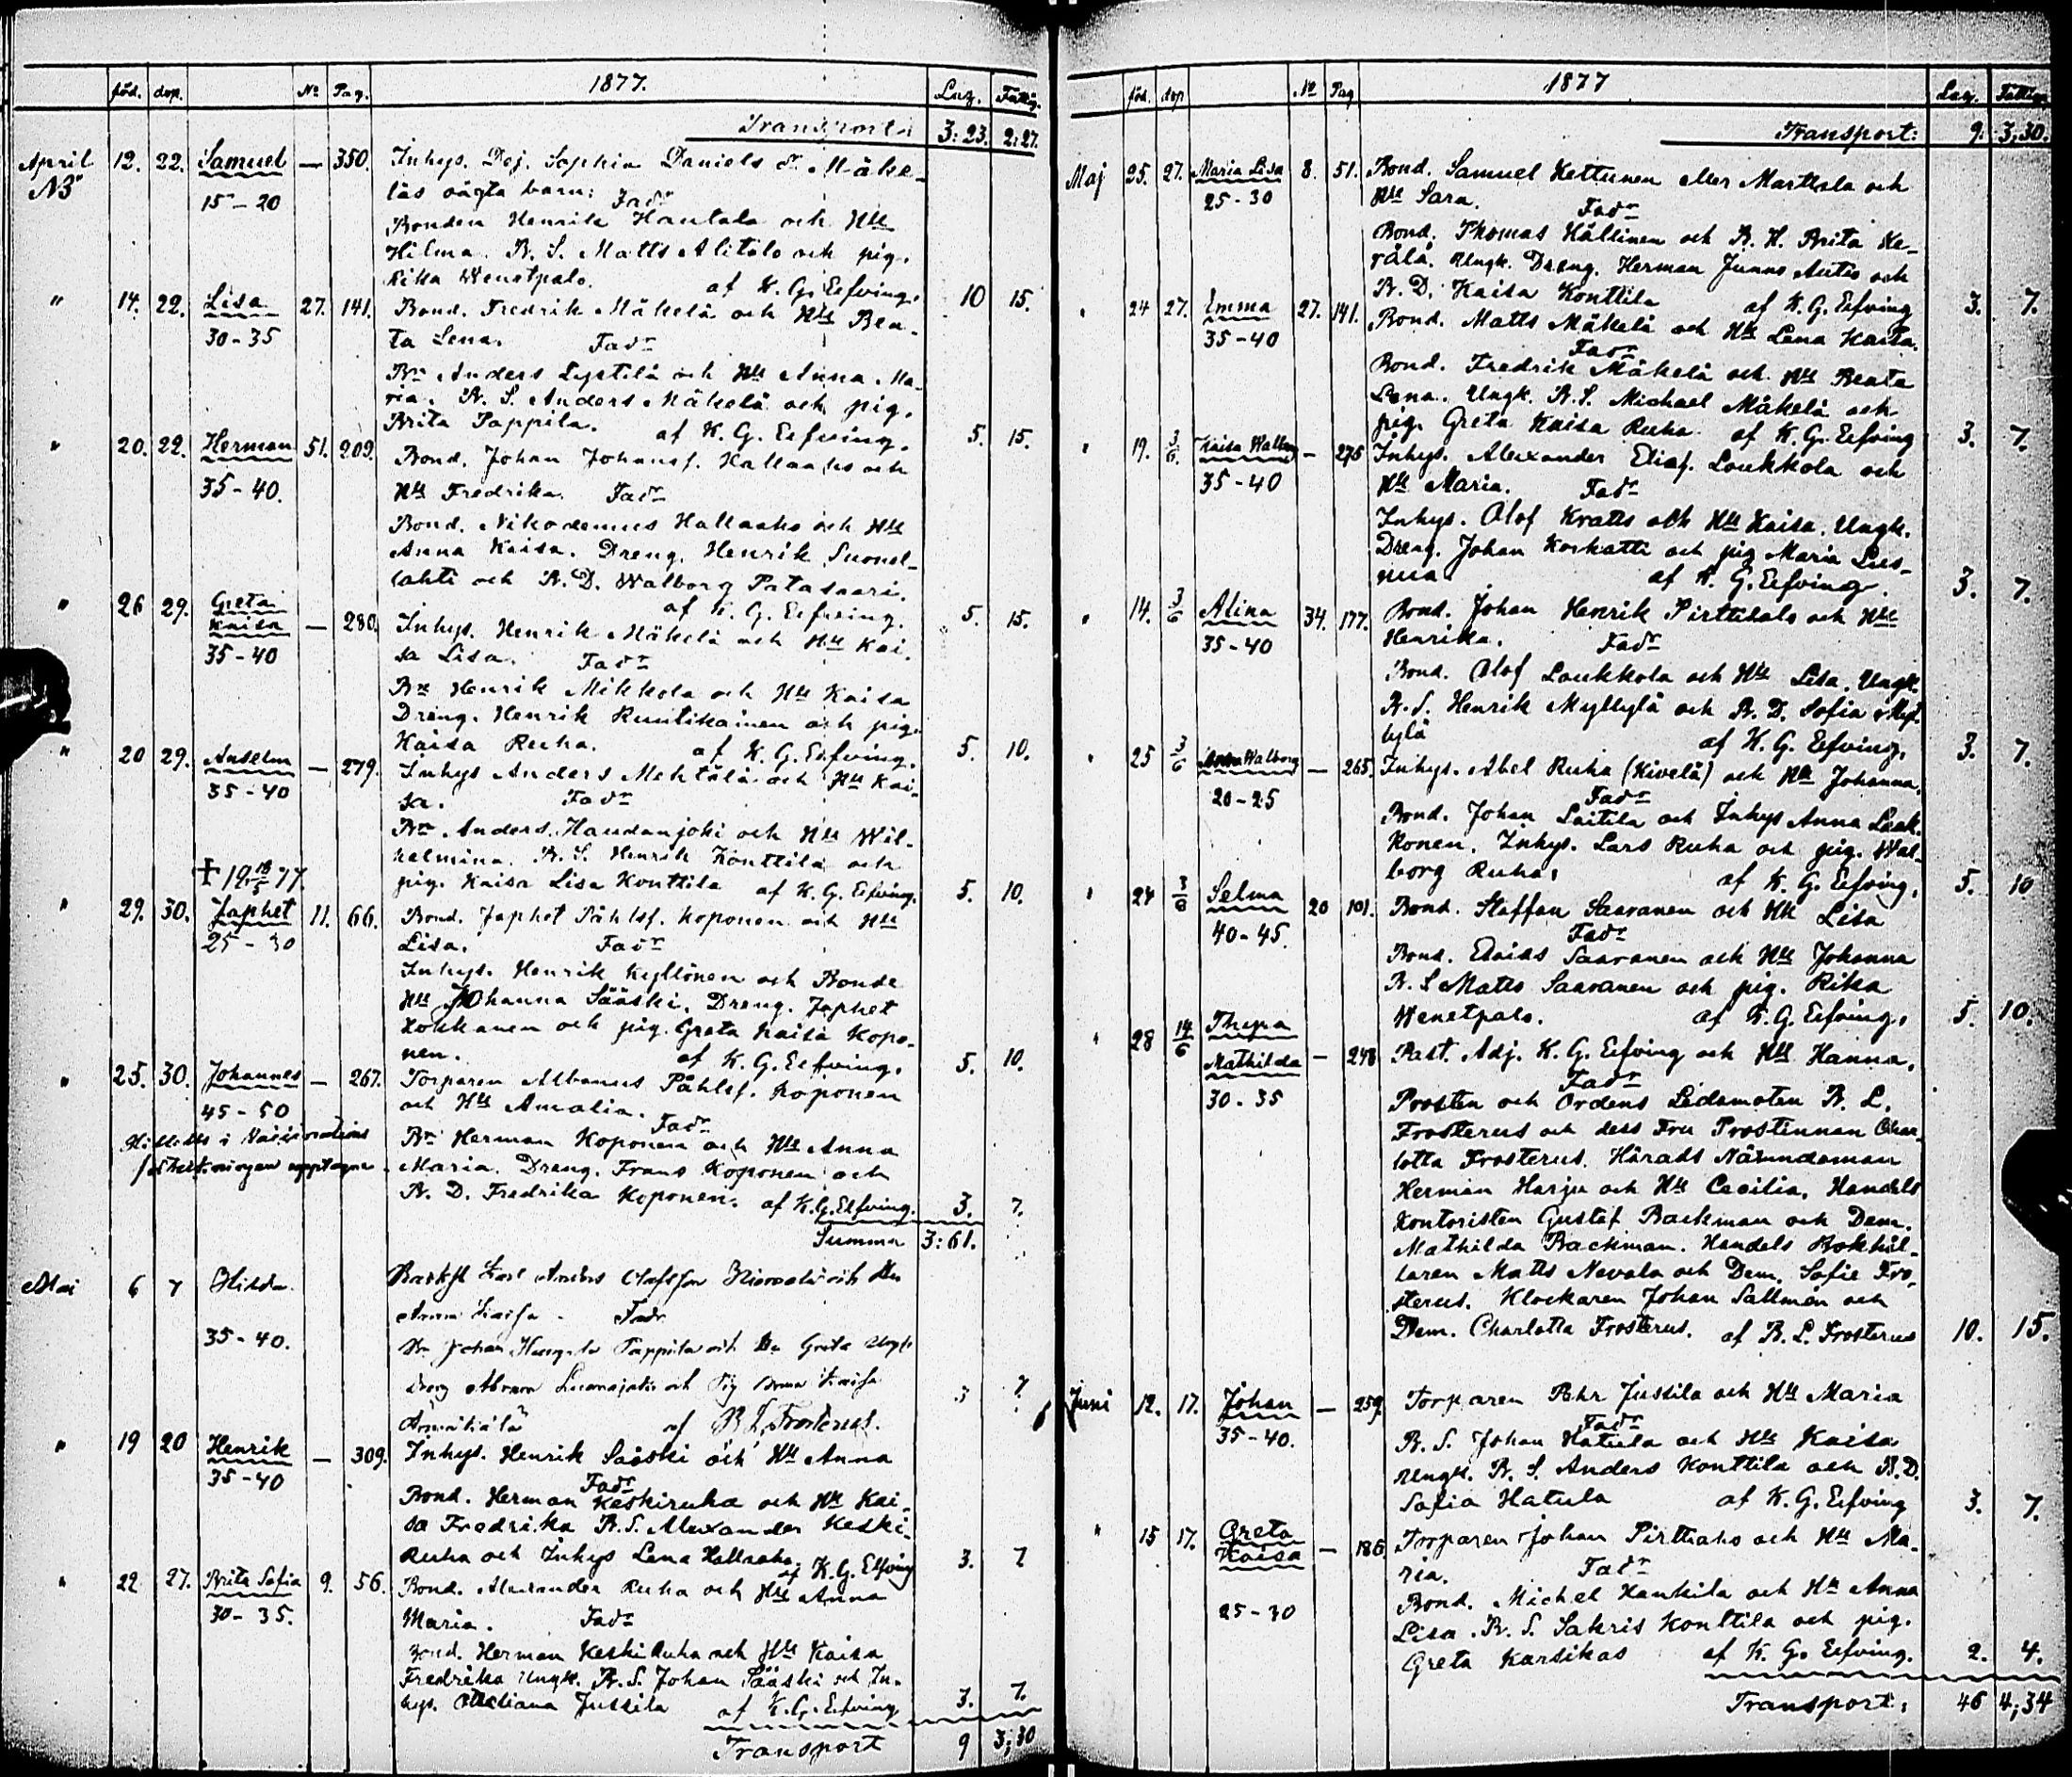 föd. dop. No Pag. 1877. Laz. Fattig.
Transport 3:23. 2:27.
April 12. 22. Samuel — 350. Inhys. Dej. Sophia Daniels dr Mäke-
N3 15-20 läs oägta barn: Fadr
Bonden Henrik Hautala och Hu
Hilma. B. S. Matts Alitalo och pig.
Rika Wenetpalo. af K. G. Eefving. 10 15.
" 14. 22. Lisa 27. 141. Bond. Fredrik Mäkelä och Hu Bea-
30-35 ta Lena. Fadr
Bn Anders Lystilä och Hu Anna Ma-
ria. B. S. Anders Mäkelä och pig.
Brita Pappila. af K. G. Eefving. 5. 15.
" 20. 22. Herman 51. 209. Bond. Johan Johansf. Hallaaho och
35-40. Hu Fredrika. Fadr
Bond. Nikodemus Hallaaho och Hu
Anna Kaisa. Dreng. Henrik Suonsl-
lahti och B. D. Walborg Patasaari.
af K. G. Eefving. 5. 15.
" 26 29. Greta
Kaisa — 280. Inhys. Henrik Mäkelä och Hu Kai-
35-40 sa Lisa. Fadr
Bn Henrik Mikkola och Hu Kaisa
Dreng. Henrik Runtikainen och pig.
Kaisa Ruha. af K. G. Eefving. 5. 10.
" 20 29. Anselm — 279. Inhys Anders Mehtälä och Hu Kai-
35-40 sa. Fadr
Bn Anders Haudanjoki och Hu Wil-
helmina. B. S. Henrik Konttila och
† 19 18/5 77. pig. Kaisa Lisa Konttila af K. G. Eefving. 5. 10.
" 29. 30. Japhet 11. 66. Bond. Japhet Påhlsf. Koponen och Hu
25-30 Lisa. Fadr
Inhys. Henrik Kyllönen och Bonde
Hu Johanna Sääski. Dreng. Japhet
Lokkanen och pig. Greta Kaisa Kopo-
nen. af K. G. Eefving. 5. 10.
" 25. 30. Johannes — 267. Torparen Albanus Påhlsf. Koponen
45-50 och Hu Amalia. Fadr
Hittills i Vaccinations Bn Herman Koponen och Hu Anna
förteckningen upptagne. Maria. Dreng. Frans Koponen och
B. D. Fredrika Koponen. af K. G. Elfving. 3. 7.
Summa 3:61.
Mai 6 7 Hilda Backst Karl Anders Olofsson och Hu
Anna Kaisa. Fadr
35-40. Bn Johan Pappila och Hu Greta Ungk
Dreng Abram och Pig Anna Kaisa 3 7
af B L Frosterus.
" 19 20 Henrik — 309. Inhys. Henrik Sääski och Hu Anna
35-40 Fadr
Bond. Herman Keskiruha och Hu Kai-
sa Fredrika B. S. Alexander Keski-
Ruha och Inhys Lena Hallaaho. af K. G. Elfving 3. 7
" 22 27. Brita Sofia 9. 56. Bond. Alexander Ruha och Hu Anna
30-35. Maria. Fadr
Bond. Herman Keski Ruha och Hu Kaisa
Fredrika Ungk. B. S. Johan Sääski och In-
hys. Jussila af K. G. Eefving 3. 7.
Transport 9 3,30
föd. dop No Pag 1877 Laz. Fattiga
Transport: 9. 3,30.
Maj 25. 27. Maria Lisa 8. 51. Bond. Samuel Kettunen eller Marttala och
25-30 Hu Sara. Fadr
Bond. Thomas Hällinen och B. H. Brita He-
rälä. Ungk. Dreng. Herman Junno Autio och
B. D. Kaisa Konttila af K. G. Eefving 3. 7.
" 24 27. Emma 27. 141. Bond. Matts Mäkelä och Hu Lena Kaisa.
35-40 Fadr
Bond. Fredrik Mäkelä och Hu Beata
Lena. Ungk. B. S. Michael Mäkelä och
pig. Greta Kaisa Ruha. af K. G. Eefving 3. 7.
" 19. 3/6. Kaisa Walborg — 275 Inhys. Alexander Eliaf. Loukkola och
35-40 Hu Maria. Fadr
Inhys. Olof Kratts och Hu Kaisa. Ungk.
Dreng. Johan Korkatti och pig Maria Lius-
nua. af K. G. Eefving. 3. 7.
" 14. 3/6 Alina 34. 177. Bond. Johan Henrik Pirttihalo och Hu
35-40 Henrika. Fadr
Bond. Olof Loukkola och Hu Lisa. Ungk.
B. S. Henrik Myllylä och B. D. Sofia Myl-
lylä af K. G. Eefving. 3. 7.
" 25 3/6 Walborg — 265. Inhys. Abel Ruha (Kivelä) och Hu Johanna.
20-25 Fadr
Bond. Johan Laitila och Inhys Anna Laak-
konen. Inhys. Lars Ruha och pig. Wal-
borg Ruha. af K. G. Eefving. 5. 10
" 24 3/6 Selma 20 101. Bond. Staffan Saaranen och Hu Lisa
40-45. Fadr
Bond. Saaranen och Hu Johanna
B. S Matts Saaranen och pig. Rika
Wenetpalo. af K. G. Eefving. 5. 10.
" 28 14/6 Thyra
Mathilda — 248 Past. Adj. K. G. Eefving och Hu Hanna.
30-35 Fadr
Prosten och Ordens Ledamoten B. L.
Frosterus och dess Fru Prostinnan Char-
lotta Frosterus. Härads Nämndeman
Herman Harju och Hu Cecilia. Handels
Kontoristen Gustaf Backman och Dem.
Mathilda Backman. Handels Bokhål-
laren Matts Nevala och Dem. Sofie Fro-
sterus. Klockaren Johan Sallmén och
Dem. Charlotta Frosterus. af B. L. Frosterus 10. 15.
Juni 12. 17. Johan — 259. Torparen Pehr Jussila och Hu Maria
35-40. Fadr
B. S. Johan Hatula och Hu Kaisa
Ungk. B. S. Anders Konttila och B. D.
Sofia Hatula af K. G. Eefving 3. 7.
" 15 17. Greta
Kaisa — 186 Torparen Johan Pirttiaho och Hu Ma-
ria. Fadr
25-30 Bond. Michel Kaukila och Hu Anna
Lisa. B. S. Sakris Konttila och pig.
Greta Karsikas af K. G. Eefving. 2. 4.
Transport: 46 4,34